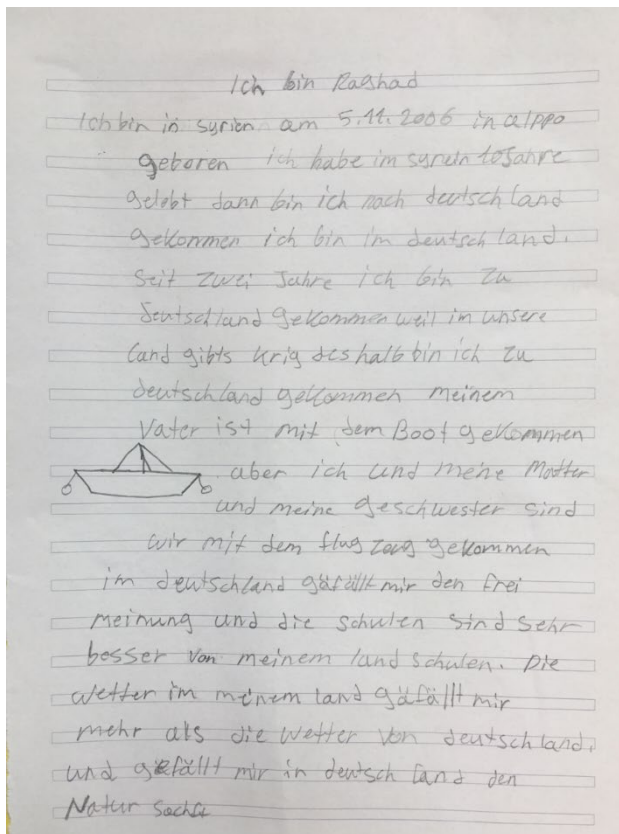 Ich bin Raghad
Ich bin in syrien am 5.11.2006 in alppo
geboren ich habe im syrein 10 Jahre
gelebt dann bin ich nach deutschland
gekommen ich bin im deutschland.
Seit zwei Jahre ich bin zu
deutschland gekommen weil im unsere
land gibts krig deshalb bin ich zu
deutschland gekommen meinem
Vater ist mit dem Boot gekommen
aber ich und meine Mutter
und meine geschwester sind
wir mit dem flug zoug gekommen
im deutschland gäfällt mir den frei
meinung und die schulen sind sehr
besser von meinem land schulen. Die
wetter im meinem land gäfällt mir
mehr als die wetter von deutschland.
und gefällt mir in deutsch land den
Natur